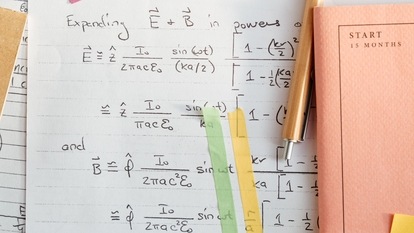 Expanding E⃗ + B⃗ in powers o
E⃗ ≅ ẑ I₀/2πacε₀ sin(ωt)/(ka/2) [1 - (kr/2)² / [1 - ½(ka
≅ ẑ I₀/2πacε₀ sin(ωt)/ka [1 - (
and
B⃗ ≅ φ̂ I₀/2πac²ε₀ sinωt kr/ka [1 - ½ / [1 - ½
≅ φ̂ I₀/2πac²ε₀ sinωt [1 - ½
START
15 MONTHS